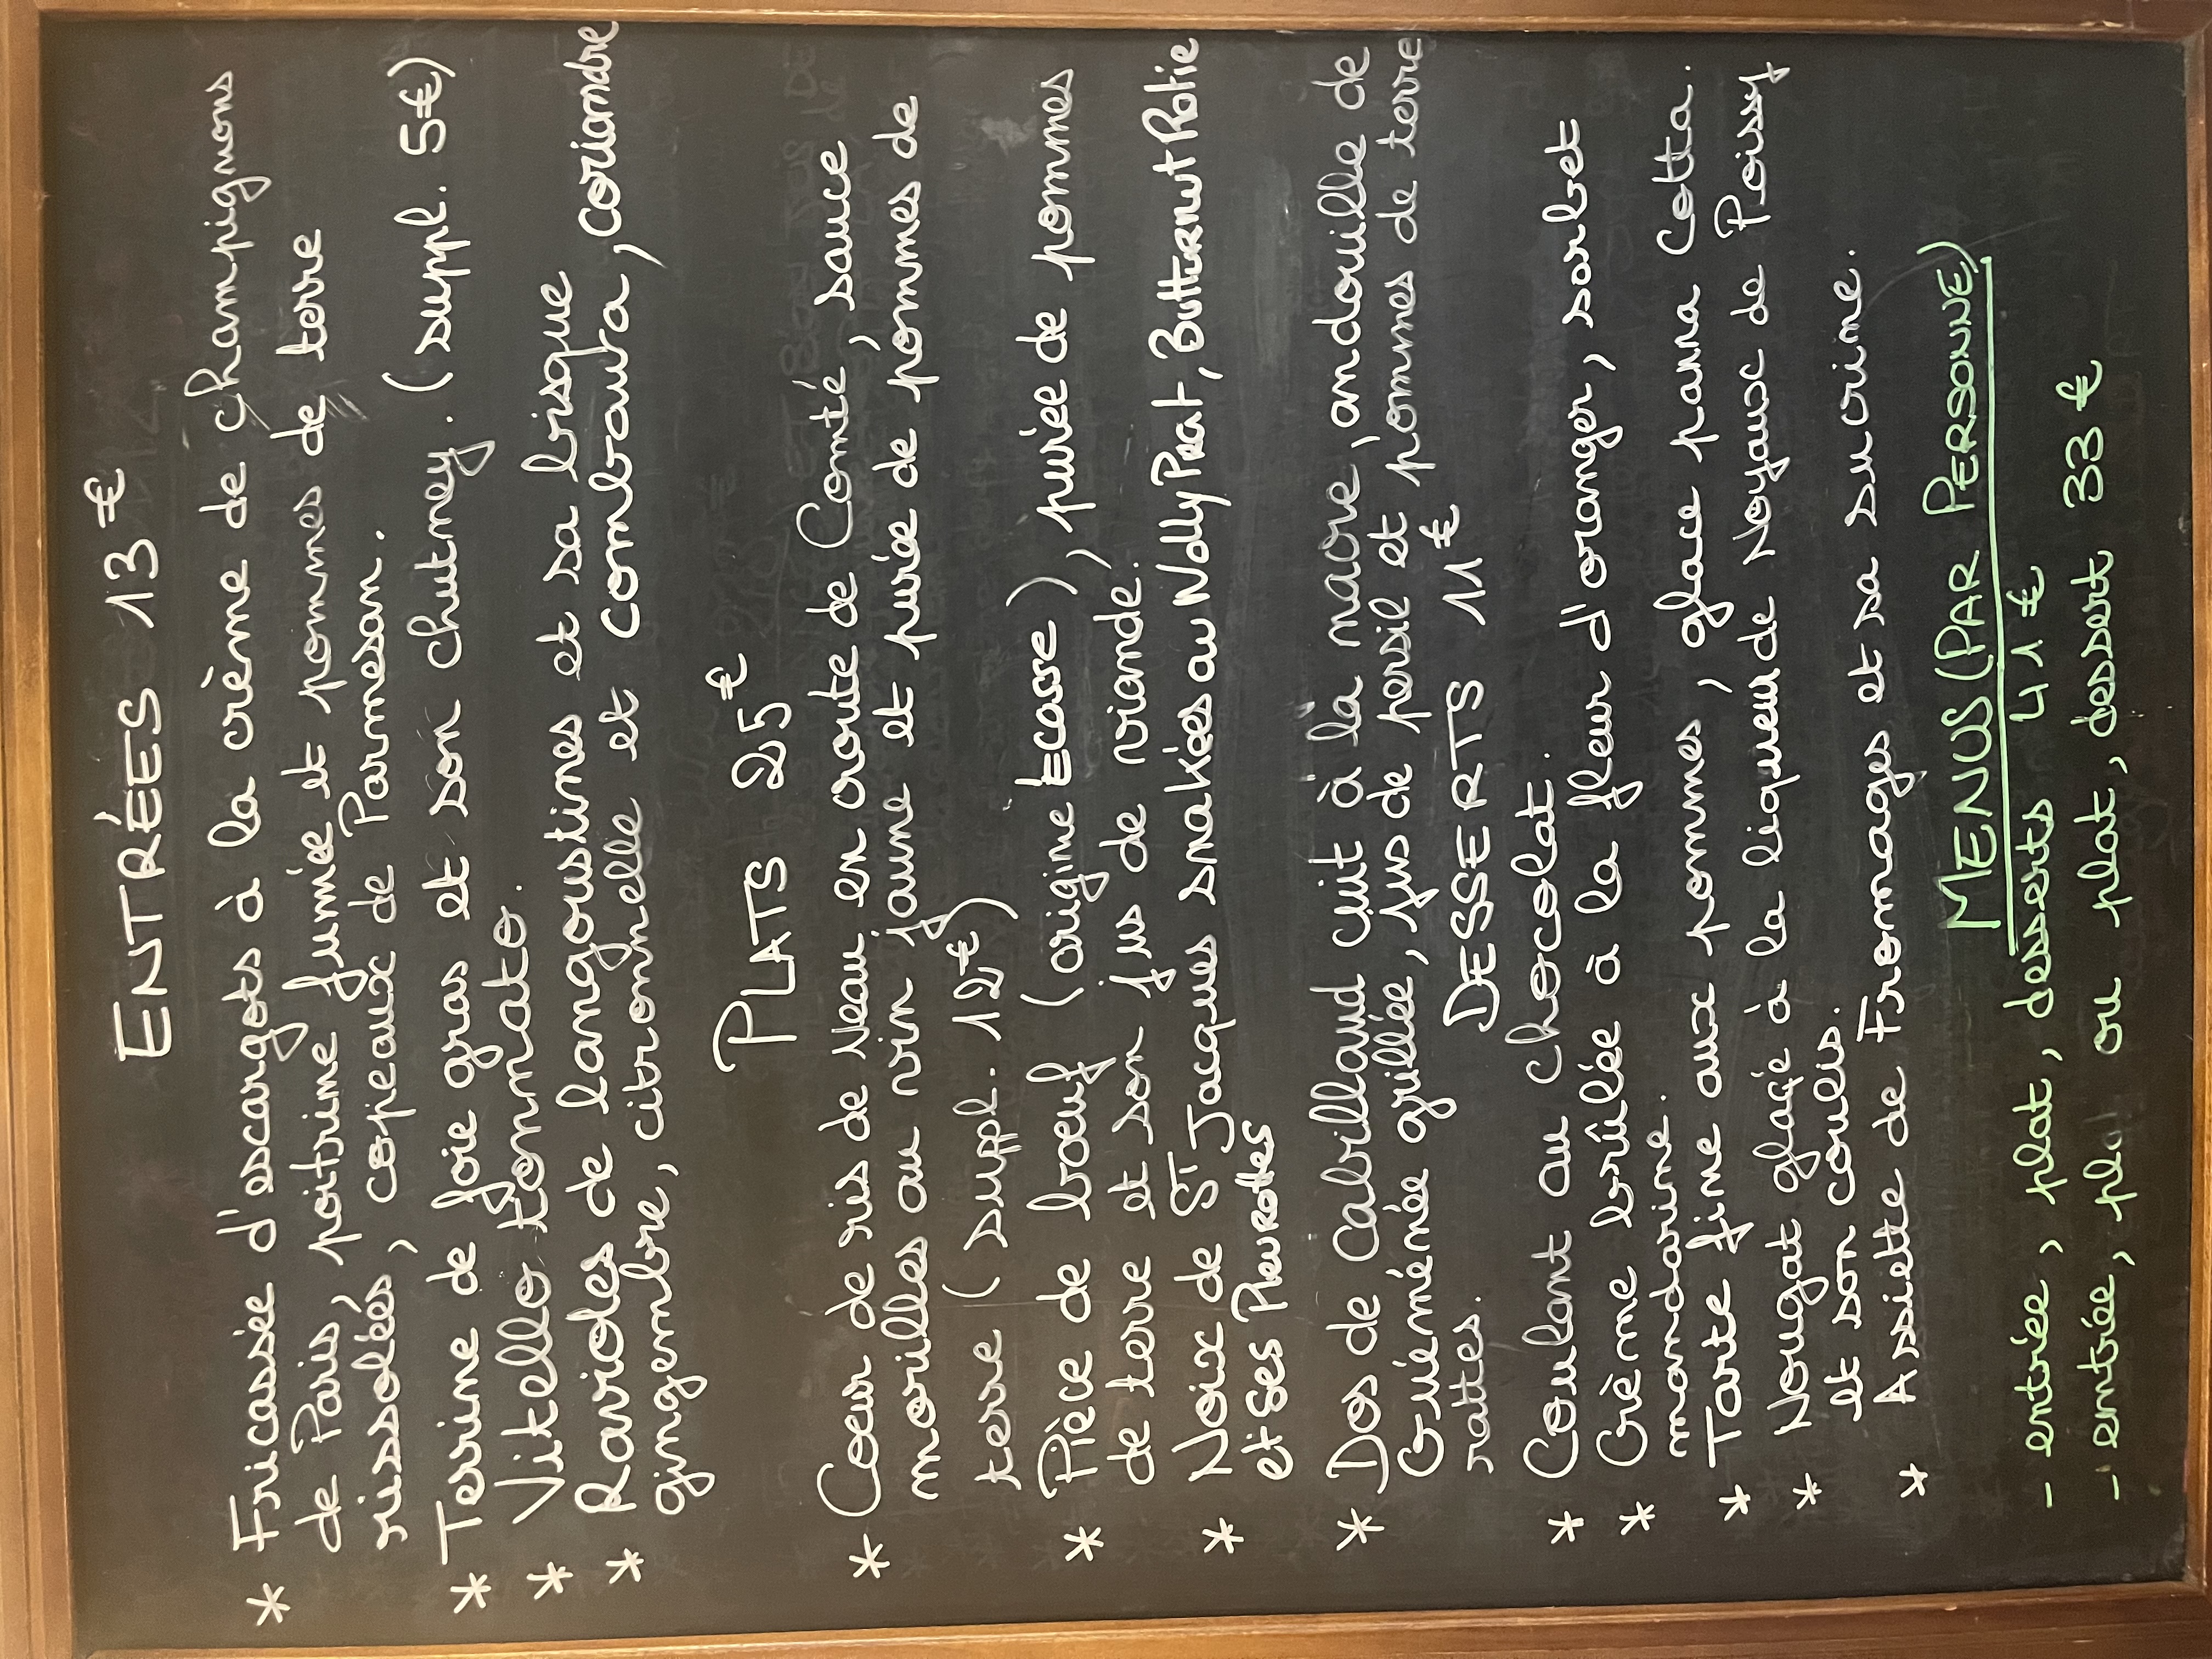 ENTRÉES 13€
* Fricassée d'escargots à la crème de champignons
de Paris, poitrine fumée et pommes de terre
rissolées, copeaux de Parmesan.
* Terrine de foie gras et son chutney. (suppl. 5€)
* Vitello tonnato.
* Ravioles de langoustines et sa bisque
gingembre, citronnelle et combauta, coriandre
PLATS 25€
* Coeur de ris de Veau en croute de Comté, sauce
morilles au vin jaune et purée de pommes de
terre (suppl. 12€)
* Pièce de boeuf (origine Ecosse), purée de pommes
de terre et son jus de viande.
* Noix de ST Jacques snakées au Nolly Prat, Butternut Rotie
et ses Pleurottes
* Dos de Cabillaud cuit à la nacre, andouille de
Guéménée grillée, jus de persil et pommes de terre
rattes.
DESSERTS 11€
* Coulant au chocolat.
* Crème brûlée à la fleur d'oranger, sorbet
mandarine.
* Tarte fine aux pommes, glace panna Cotta.
* Nougat glacé à la liqueur de Noyaux de Poissy
et son coulis.
* Assiette de Fromages et sa sucrine.
MENUS (PAR PERSONNE)
- entrée, plat, desserts 41€
- entrée, plat ou plat, dessert 33€